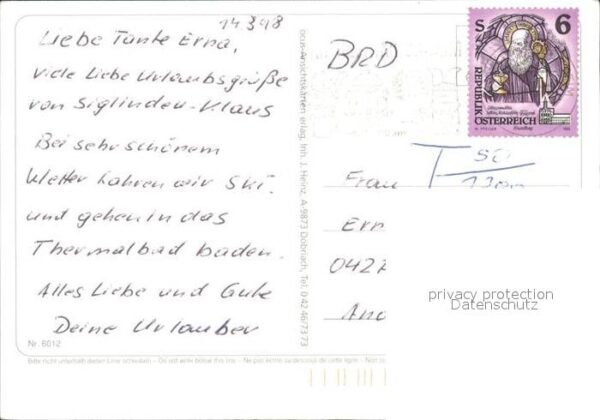 14398
Liebe Tante Erna,
viele Liebe Urlaubsgrüße
von Siglinden-Klaus
Bei sehr schönem
Wetter fahren wir Ski.
und gehen in das
Thermalbad baden.
Alles Liebe und Gute
Deine Urlauber
Nr. 6012
ocus-Ansichtskarten erlag, Inh. J. Heinz, A-9873 Döbriach, Tel. 0 42 46/73 73
BRD
S 6
REPUBLIK
ÖSTERREICH
T 50
Frau
Ern
042
And
privacy protection
Datenschutz
Bitte nicht unterhalb dieser Linie schreiben – Do not write below this line – Ne pas écrire au-dessous de cette ligne – Non